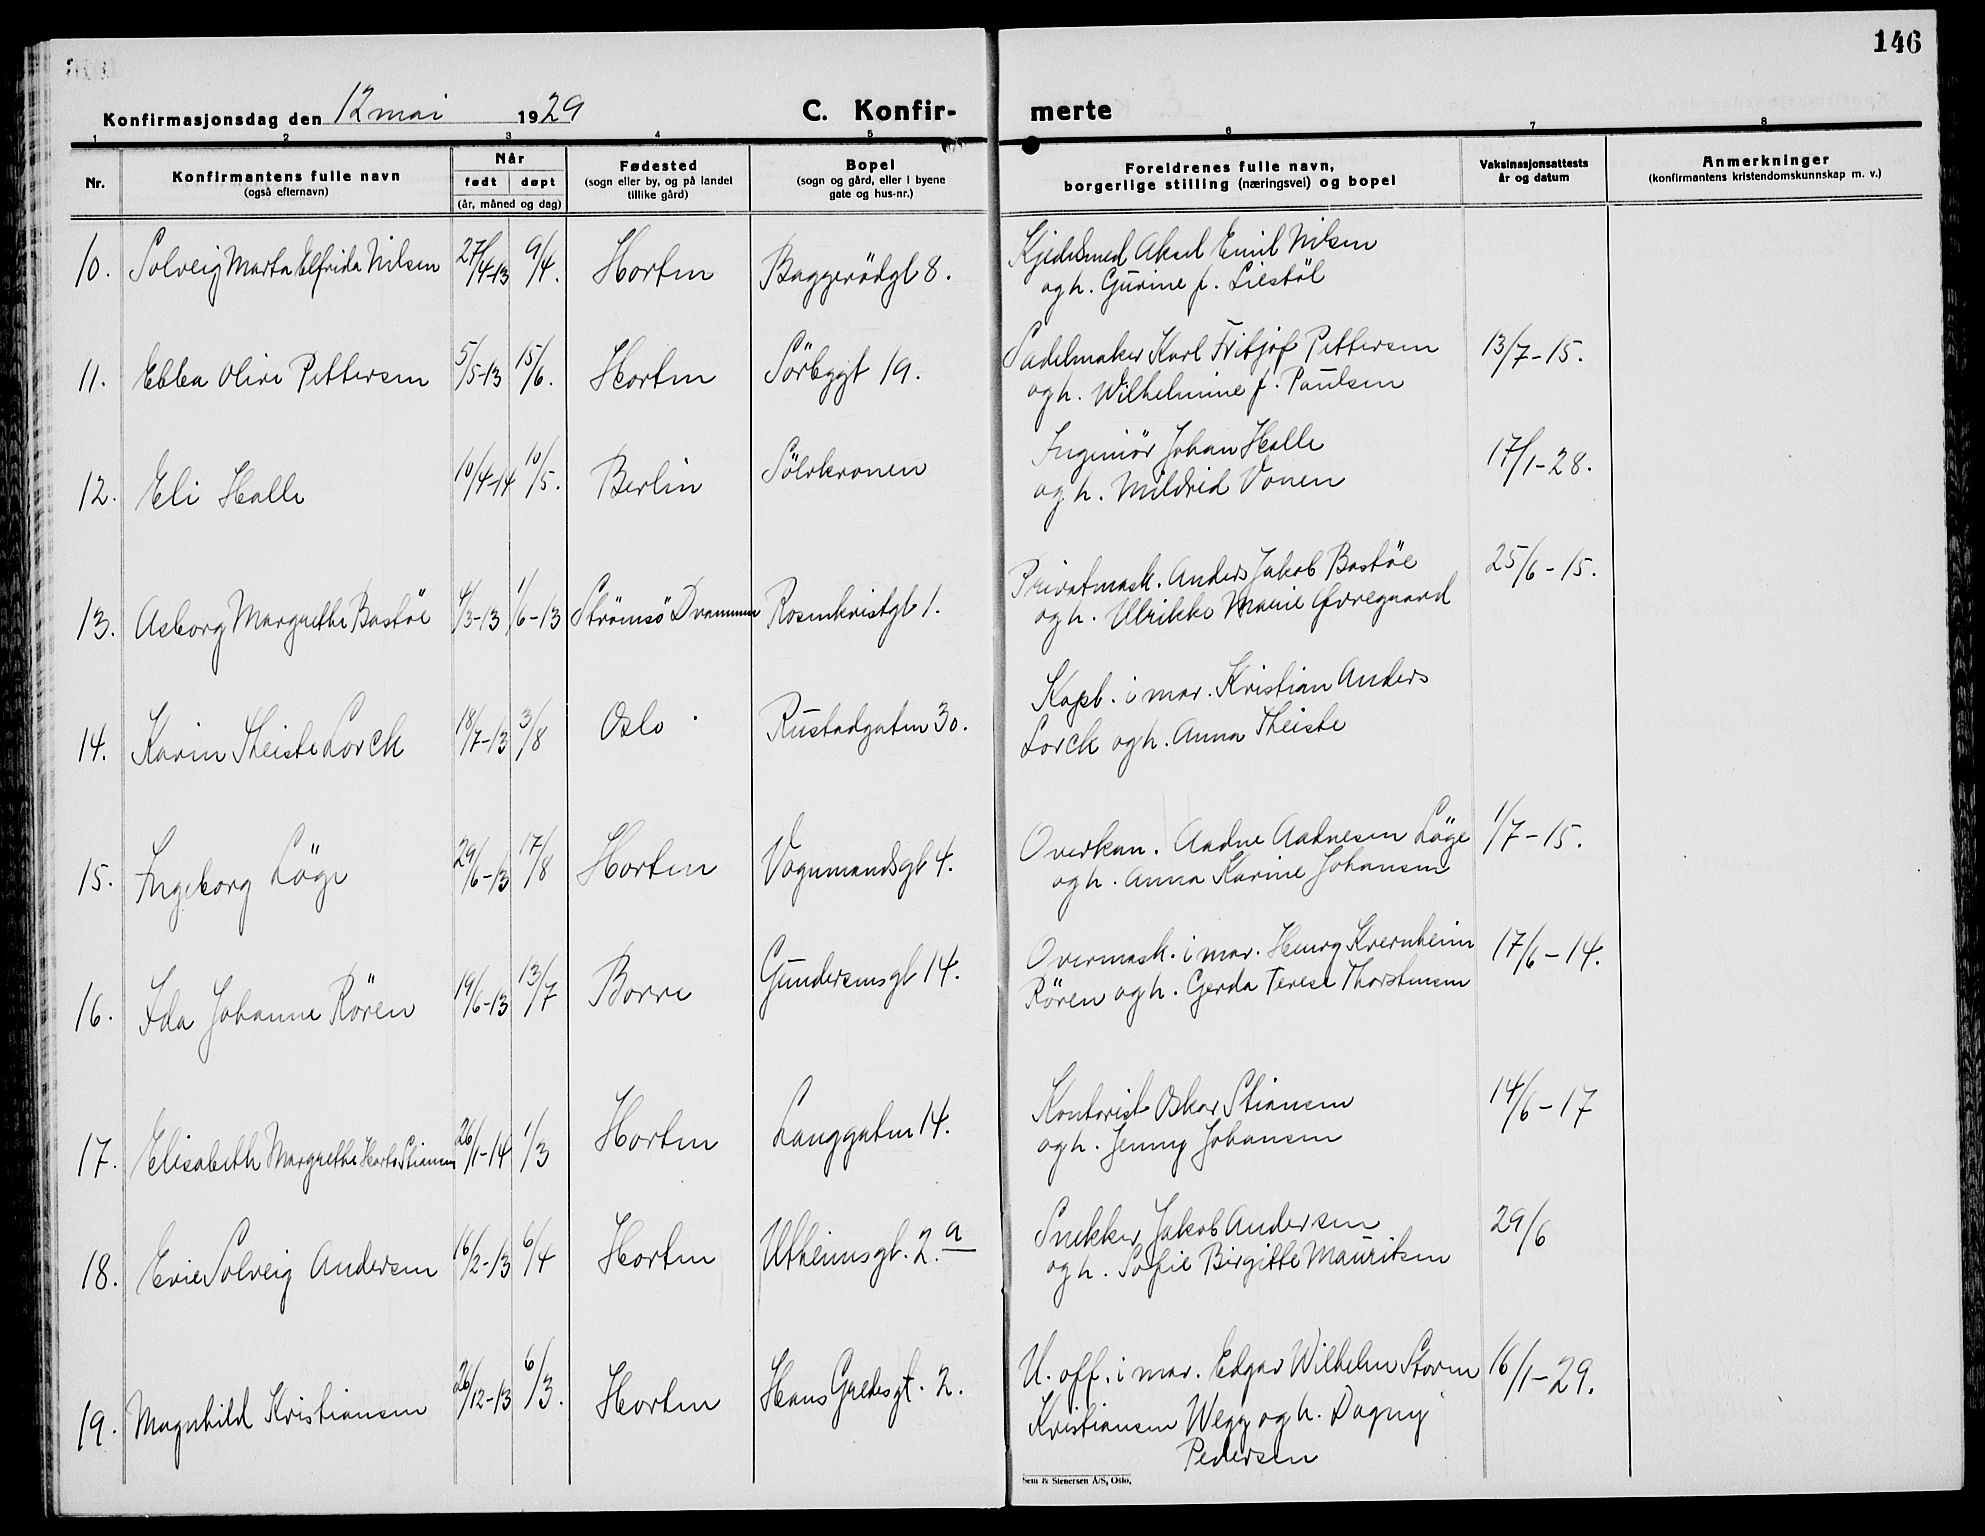 146
Konfirmasjonsdag den 12 mai 1929 C. Konfir- merte
1 2 3 4 5 6 7 8
Nr. Konfirmantens fulle navn (også efternavn) Når født døpt (år, måned og dag) Fødested (sogn eller by, og på landet tillike gård) Bopel (sogn og gård, eller i byene gate og hus-nr.) Foreldrenes fulle navn, borgerlige stilling (næringsvei) og bopel Vaksinasjonsattests år og datum Anmerkninger (konfirmantens kristendomskunnskap m. v.)
10. Solveig Marta Elfrida Nilsen 27/4-13 9/4. Horten Baggerödgt 8. Kjedelsmed Aksel Emil Nilsen
og h. Gurine f. Liestöl
11. Ebba Olive Pettersen 5/5-13 15/6. Horten Sörbygt 19. Sadelmaker Karl Fritjof Pettersen 13/7-15.
og h. Wilhelmine f. Paulsen
12. Eli Halle 10/4-14 10/5. Berlin Sölvkronen Ingeniör Johan Halle 17/1-28.
og h. Mildrid Vonen
13. Asborg Margrethe Bastöe 4/3-13 1/6-13 Strömsö Drammen Rosenkristgt 1. Privatmask. Anders Jakob Bastöe 25/6-15.
og h. Ulrikke Marie Øvregaard
14. Karin Theiste Lorck 18/7-13 3/8 Oslo Rustadgaten 30. Kapt. i mar. Kristian Anders
Lorck og h. Anna Theiste
15. Ingeborg Löge 29/6-13 17/8 Horten Vognmandsgt 4. Overkan. Aadne Aadnesen Löge 1/7-15.
og h. Anna Karine Johansen
16. Ida Johanne Rören 19/6-13 13/7 Borre Gundersensgt 14. Overmask. i mar. Henry Kvernheim 17/6-14.
Rören og h. Gerda Terese Thorstensen
17. Elisabeth Margrethe Stiansen 26/1-14 1/3 Horten Langgaten 14. Kontorist Oskar Stiansen 14/6-17
og h. Jenny Johansen
18. Evie Solveig Andersen 16/2-13 6/4 Horten Utheimsgt. 2.a Snekker Jakob Andersen 29/6
og h. Sofie Birgitte Mauritsen
19. Magnhild Kristiansen 26/12-13 6/3. Horten Hans Gredesgt. 2. U. off. i mar. Edgar Wilhelm Storm 16/1-29.
Kristiansen Wegg og h. Dagny
Pedersen
Sem & Stenersen A/S, Oslo.